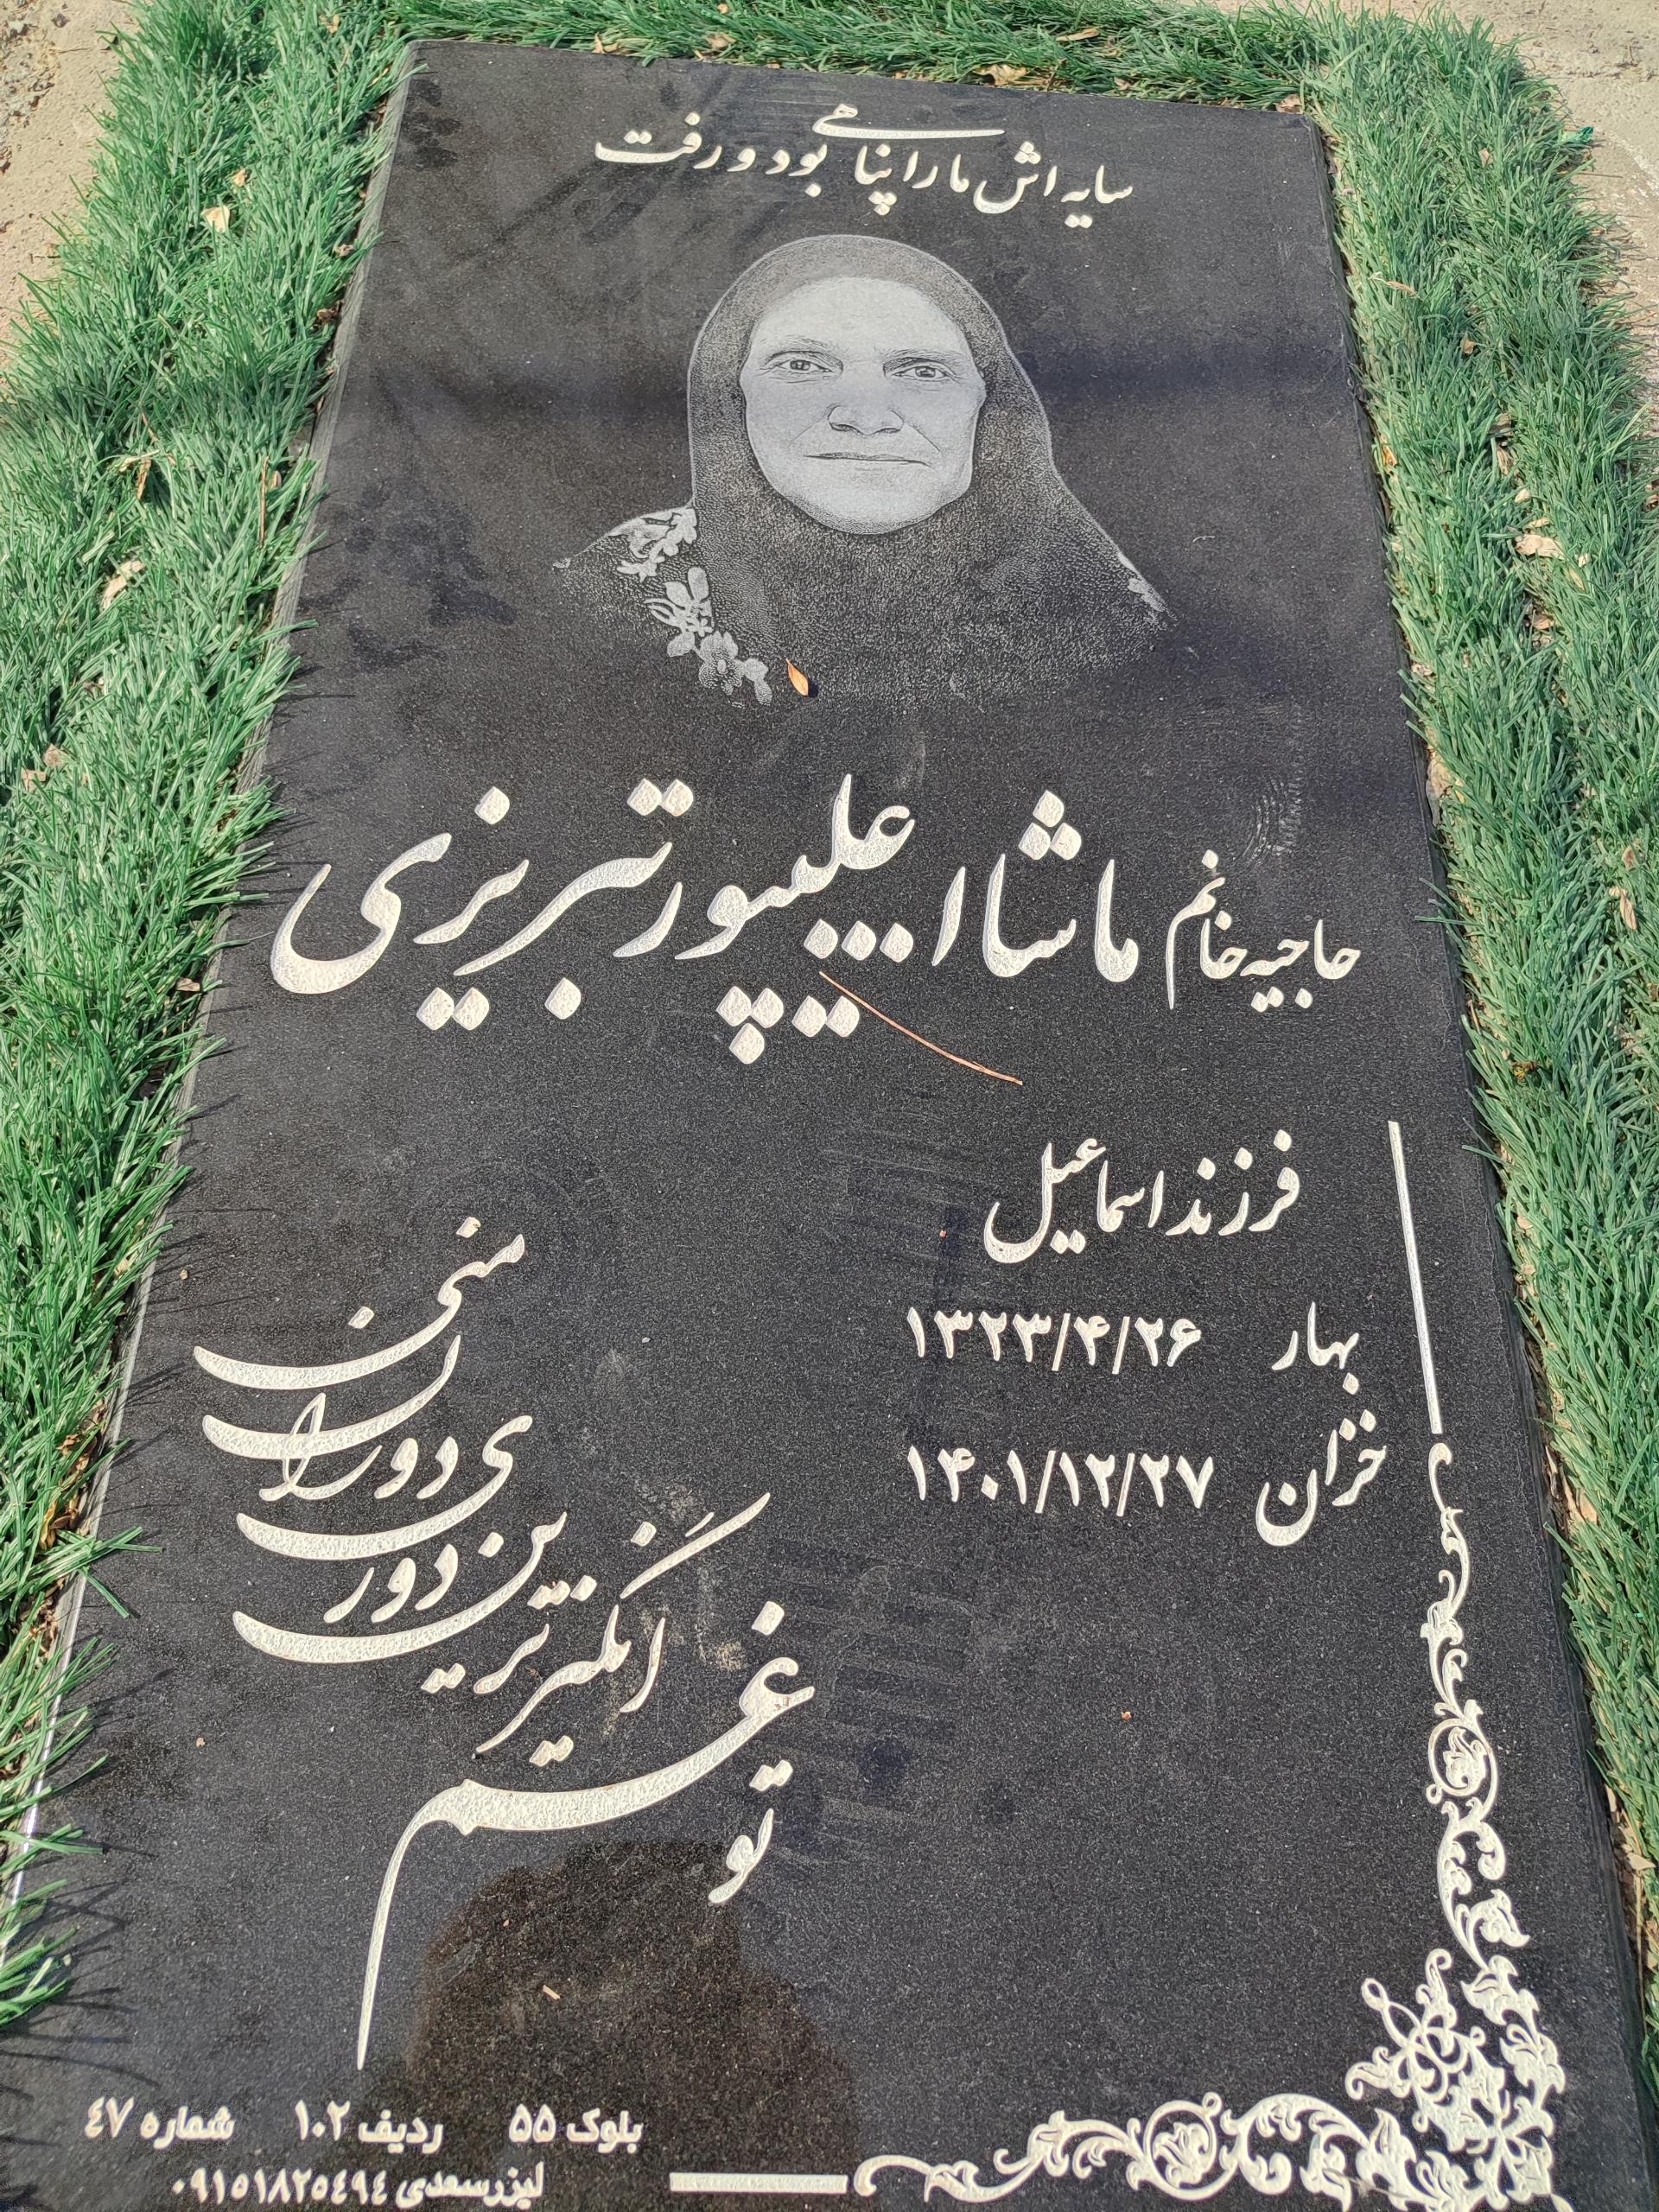 سایه اش ما را پناهی بود و رفت
حاجیه خانم ماشاا... علیپور تبریزی
فرزند اسماعیل
بهار ۱۳۲۳/۴/۲۶
خزان ۱۴۰۱/۱۲/۲۷
تو غم انگیزترین دوری دوران منی
بلوک ۵۵ ردیف ۱۰۲ شماره ۴۷
لیزر سعدی ۰۹۱۵۱۸۲۵۴۹۴